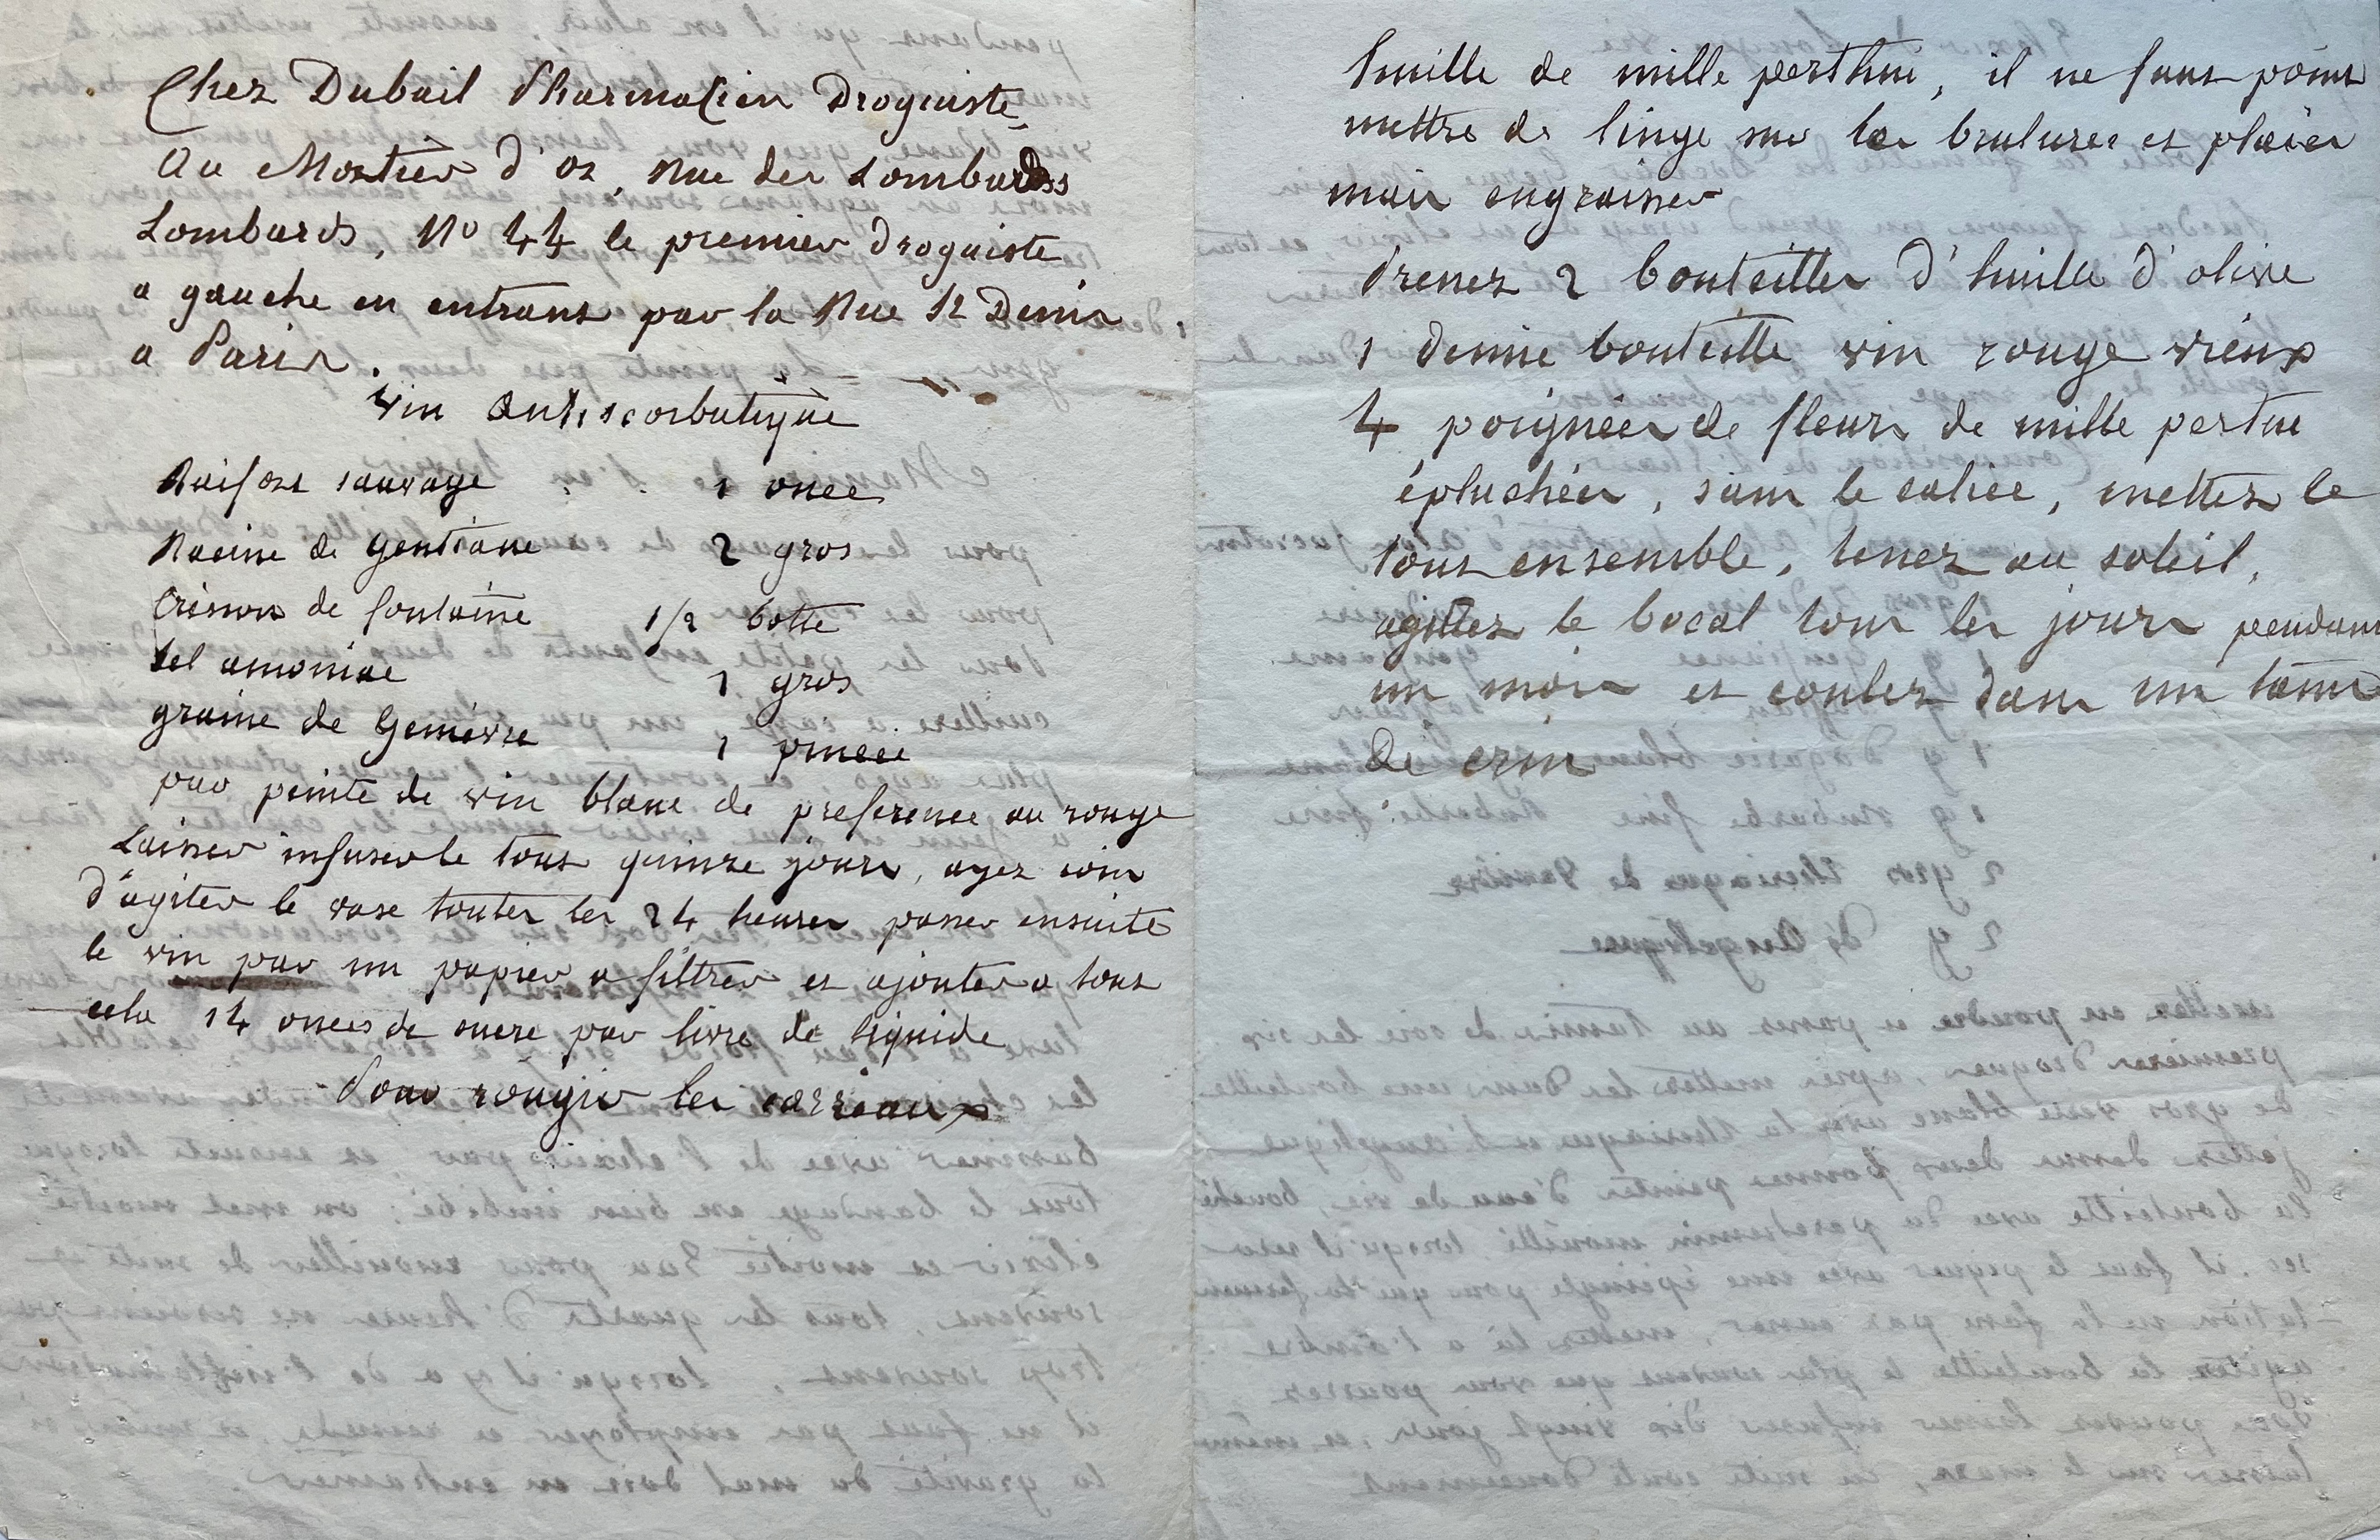 Chez Dubail Pharmacien Droguiste
au Mortier d'or, Rue des Lombards
Lombards, No 44 le premier droguiste
a gauche en entrant par la Rue St Denis
a Paris.
Vin Antiscorbutique
Raifort sauvage . . 1 once
Racine de Gentiane 2 gros
Cresson de fontaine 1/2 botte
Sel amoniac 1 gros
graine de Genièvre 1 pincée
par peinte de vin blanc de preference au rouge
Laisser infuser le tout quinze jours, ayez soin
d'agiter le vase toutes les 24 heures passer ensuite
le vin par un papier a filtrer et ajouter a tout
cela 14 onces de sucre par livre de liquide
Pour rougir les carreaux
huille de mille perthui, il ne faut point
mettre de linge sur les brulures et plaies
mais engraisser
Prenez 2 bouteilles d'huile d'olive
1 demie bouteille vin rouge vieux
4 poignées de fleurs de mille pertui
épluchées, sans le calice, mettez le
tout ensemble, tenez au soleil,
agittez le bocal tous les jours pendant
un mois et coulez dans un tamis
de crin